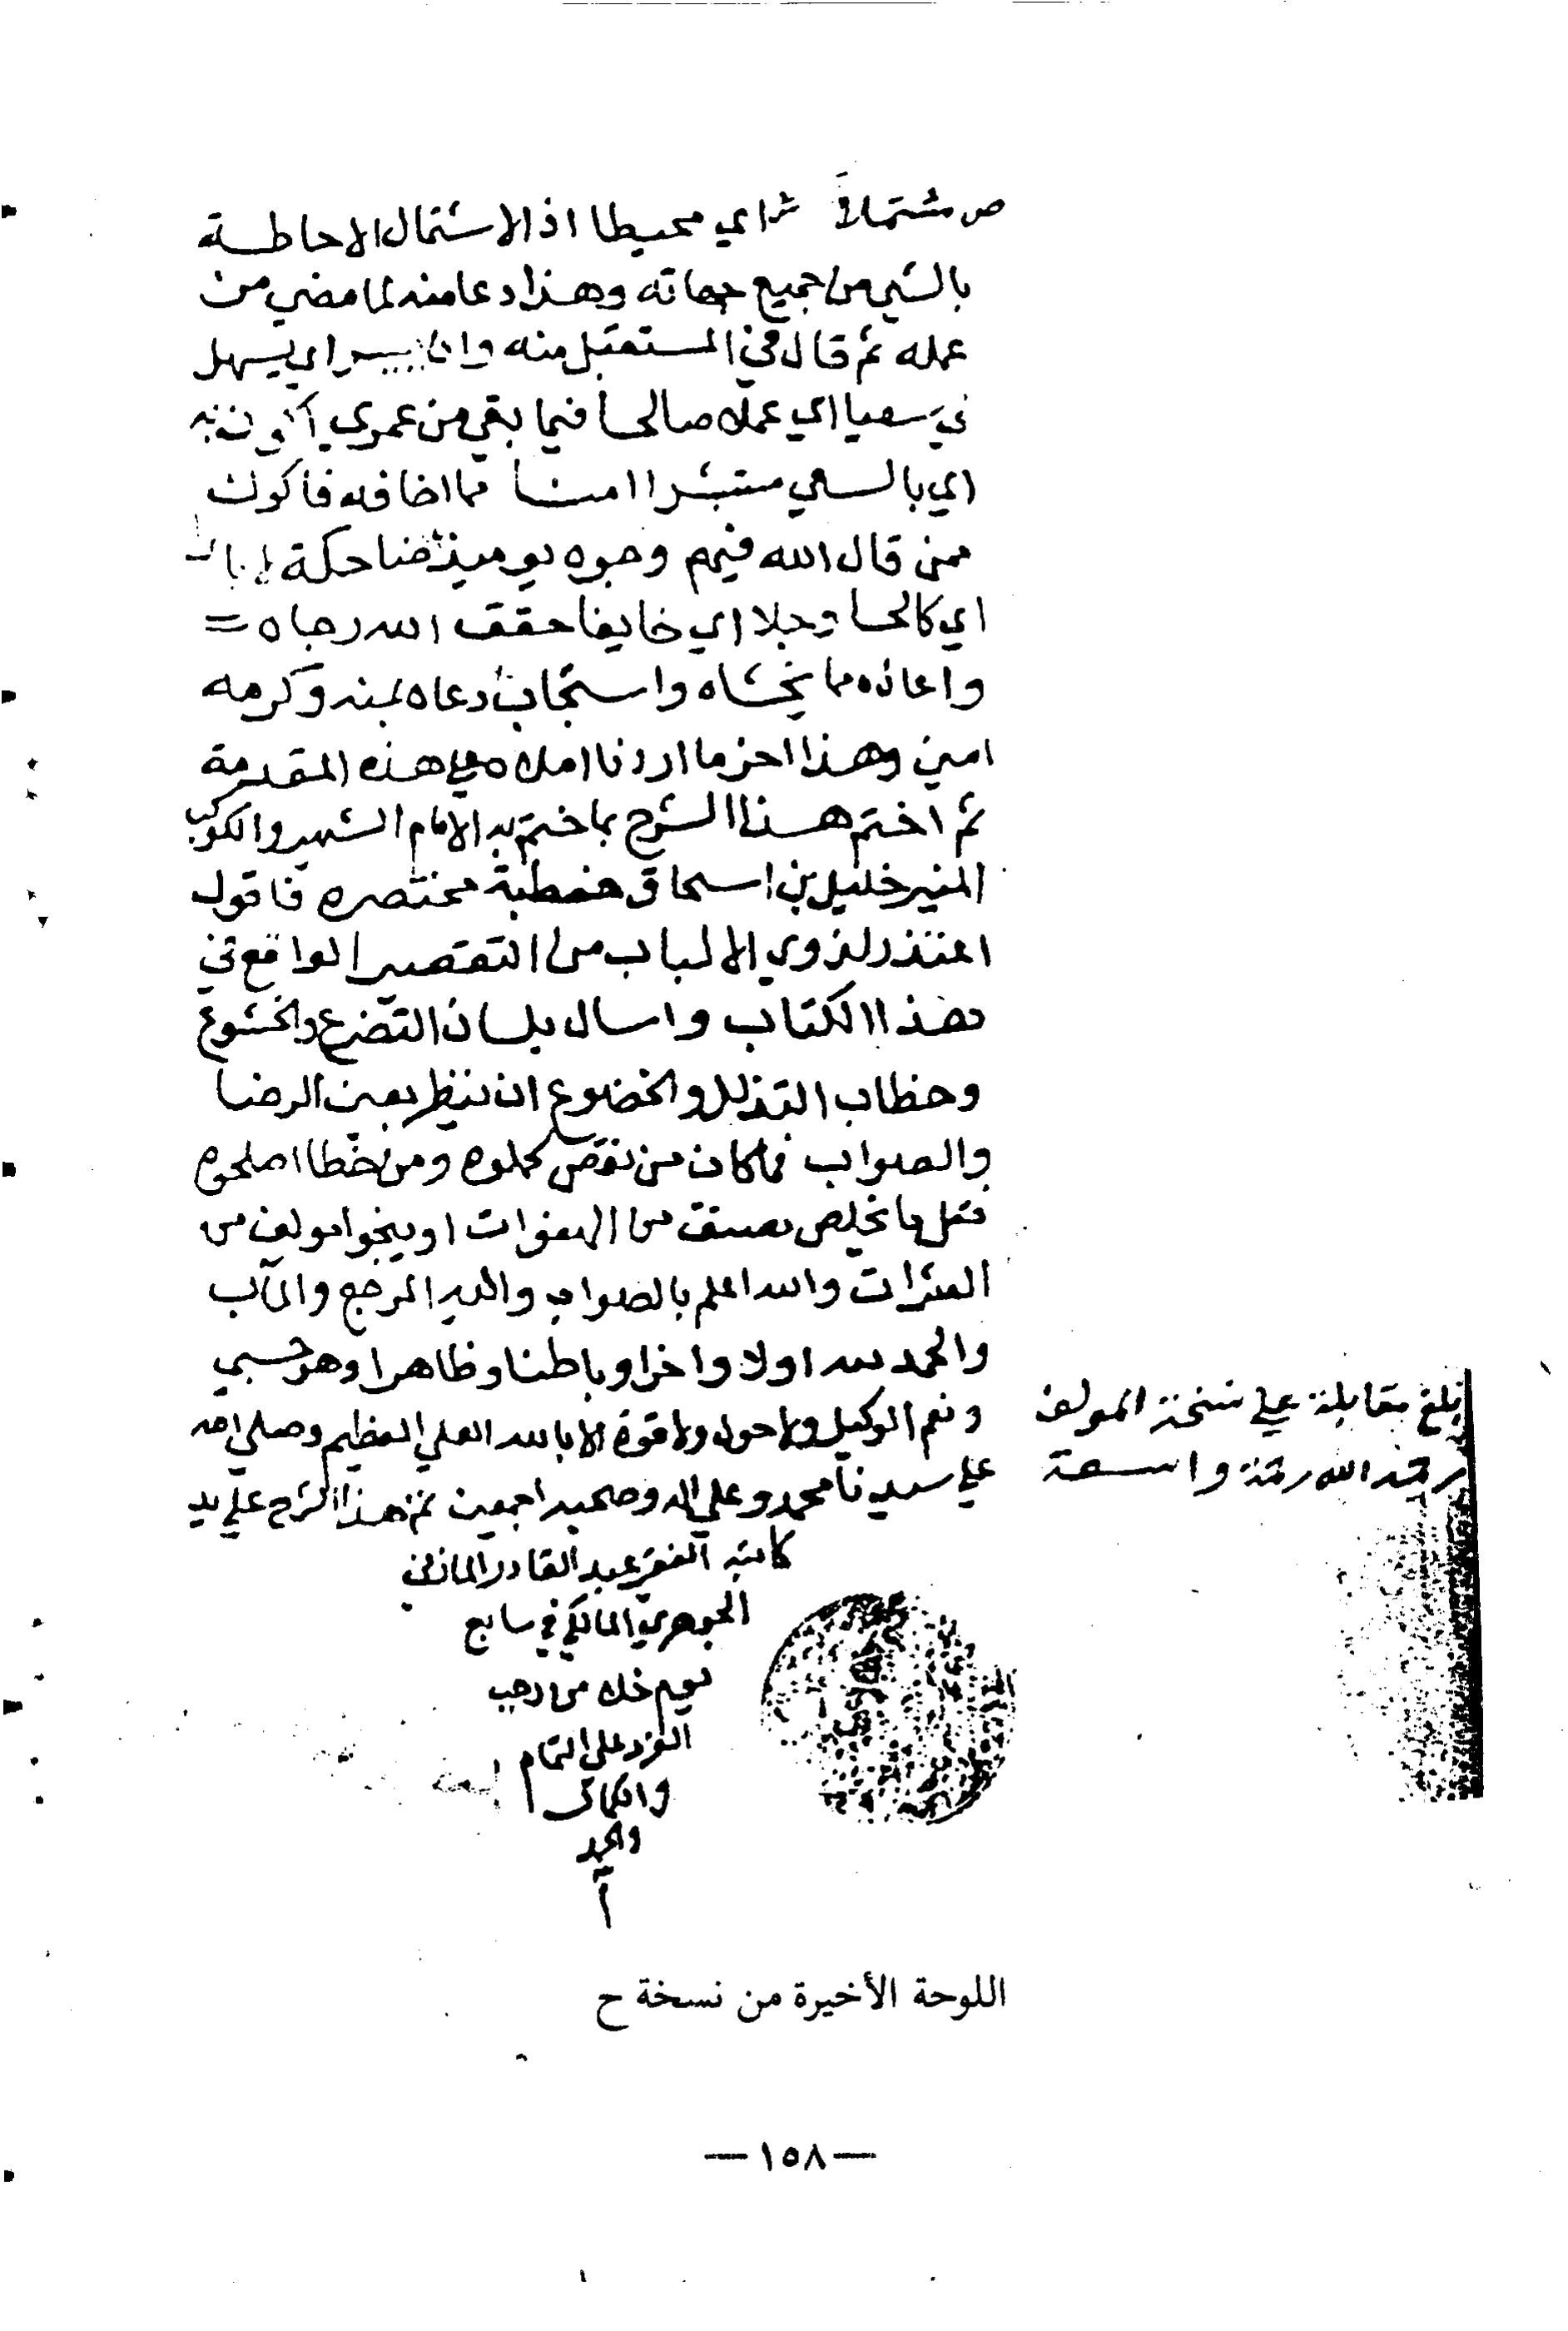 ص مشتملا ش اي محيطا اذ الاشتمال الاحاطة
بالشي من جميع جهاته وهذا دعا منه لما مضي من
عمله ثم قال في المستقبل منه وان ييسر اي يسهل
لي سعيا اي عملا صالحا فيما بقي من عمري اكون به
اي بالسعي مستبشرا امنا مما اخافه فاكون
ممن قال الله فيهم وجوه يوميذ ضاحكة
اي كالحا وجلا اي خايفا حقق الله رجاه =
واعاذه مما يخشاه واستجاب دعاه بمنه وكرمه
امين وهذا اخر ما اردنا املاه علي هذه المقدمة
ثم اختم هذا الشرح بما ختم به الامام الشهير والكوكب
المنير خليل بن اسحاق خطبة مختصره فاقول
اعتذر لذوي الالباب من التقصير الواقع في
هذا الكتاب واسال بلسان التضرع والخشوع
وخطاب التذلل والخضوع ان ينظر بعين الرضا
والصواب فما كان من نقص كملوه ومن خطا اصلحوه
فقل ما يخلص مصنف من الهفوات او ينجوا مولف من
العثرات والله اعلم بالصواب واليه المرجع والمآب
والحمد لله اولا واخرا وباطنا وظاهرا وهو حسبي
ونعم الوكيل ولا حول ولا قوة الا بالله العلي العظيم وصلي الله
علي سيدنا محمد وعلي اله وصحبه اجمعين تم هذا الشرح علي يد
كاتبه الفقير عبد القادر
الجوهري المالكي في سابع
يوم خلا من رجب
الفرد علي التمام
والكمال
والحمد
بلغ مقابلة علي نسخة المولف
رحمه الله رحمة واسعة
اللوحة الأخيرة من نسخة ح
— ١٥٨ —